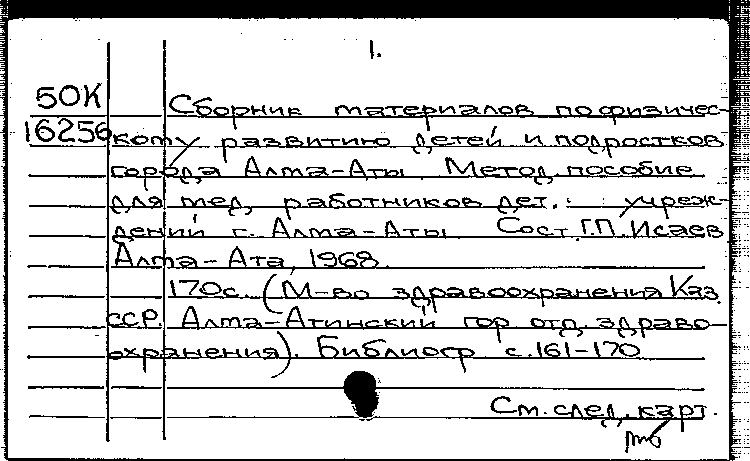 1.
50К Сборник материалов по физичес-
16256 кому развитию детей и подростков
города Алма-Аты. Метод. пособие
для мед. работников дет. учреж-
дений г. Алма-Аты Сост. Г.П. Исаев
Алма-Ата, 1968.
170с. (М-во здравоохранения Каз.
ССР. Алма-Атинский гор отд. здраво-
охранения). Библиогр с.161-170
См. след. карт.